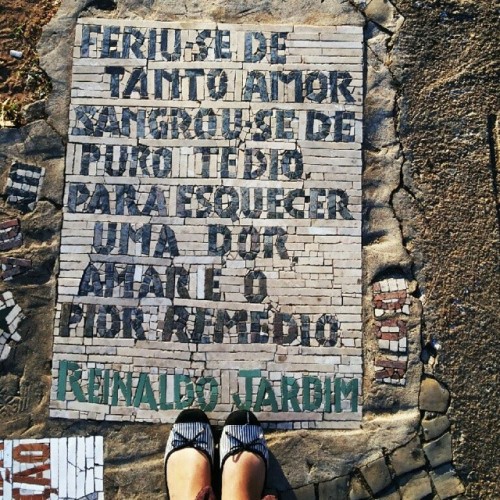 FERIU-SE DE
TANTO AMOR
SANGROU-SE DE
PURO TÉDIO
PARA ESQUECER
UMA DOR
AMAR E O
PIOR REMEDIO
REINALDO JARDIM